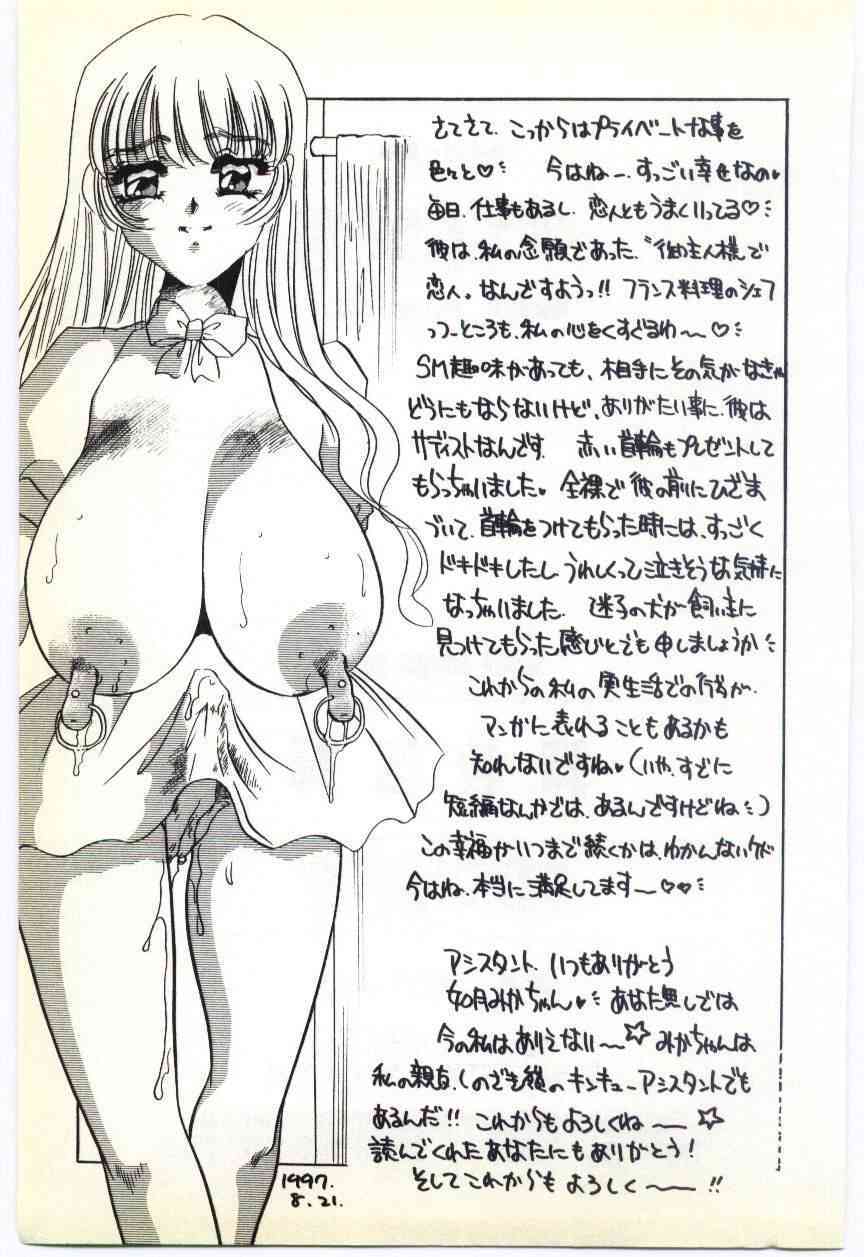 さてさて、こっからはプライベートな事を
色々と♡ 今はねー、すっごい幸せなの♥
毎日、仕事もあるし、恋人ともうまくいってる♡
彼は、私の念願であった、“御主人様”で
恋人。なんですようっ!! フランス料理のシェフ
っつーところも、私の心をくすぐるわ〜♡
SM趣味があっても、相手にその気がなきゃ
どうにもならないけど、ありがたい事に、彼は
サディストなんです。 赤い首輪もプレゼントして
もらっちゃいました♥ 全裸で彼の前にひざま
づいて、首輪をつけてもらった時には、すっごく
ドキドキしたし、うれしくって泣きそうな気持に
なっちゃいました。 迷子の犬が飼い主に
見つけてもらった感じとでも申しましょうか
これからの私の実生活での行為が、
マンガに表れることもあるかも
知れないですね♥(いや、すでに
短編なんかでは、あるんですけどね)
この幸福がいつまで続くかは、わかんないケド
今はね、本当に満足してます〜♡♡
アシスタント、いつもありがとう
如月みかちゃん♥ あなた無しでは
今の私はありえない〜☆ みかちゃんは
私の親友、しのざき嶺のキンキューアシスタントでも
あるんだ!! これからもよろしくね〜☆
読んでくれたあなたにもありがとう!
そしてこれからもよろしく〜!!
1997.
8.21.